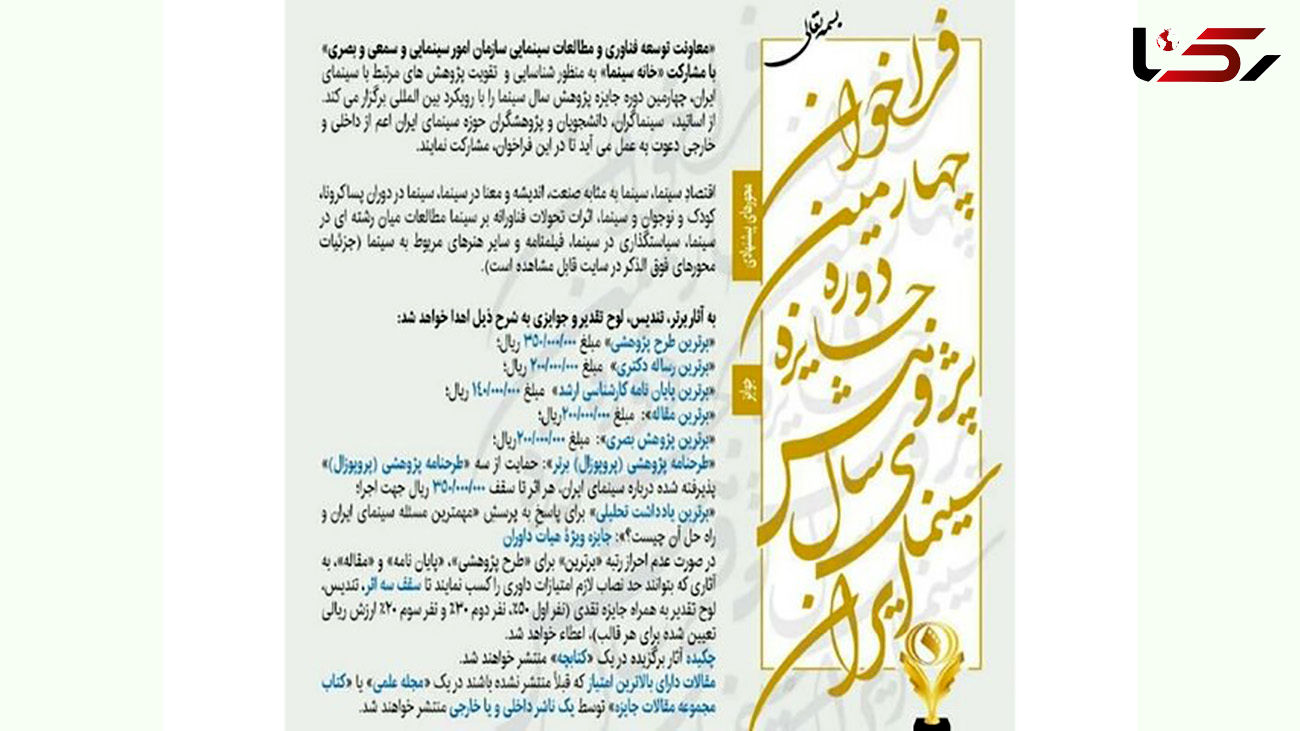 بسمه تعالی
رکنا
فراخوان
چهارمین
دوره
جایزه
پژوهش
سال
سینمای
ایران
«معاونت توسعه فناوری و مطالعات سینمایی سازمان امور سینمایی و سمعی و بصری»
با مشارکت «خانه سینما» به منظور شناسایی و تقویت پژوهش های مرتبط با سینمای
ایران، چهارمین دوره جایزه پژوهش سال سینما را با رویکرد بین المللی برگزار می کند.
از اساتید، سینماگران، دانشجویان و پژوهشگران حوزه سینمای ایران اعم از داخلی و
خارجی دعوت به عمل می آید تا در این فراخوان، مشارکت نمایند.
محورهای پیشنهادی
اقتصادِ سینما، سینما به مثابه صنعت، اندیشه و معنا در سینما، سینما در دوران پساکرونا،
کودک و نوجوان و سینما، اثرات تحولات فناورانه بر سینما مطالعات میان رشته ای در
سینما، سیاستگذاری در سینما، فیلمنامه و سایر هنرهای مربوط به سینما (جزئیات
محورهای فوق الذکر در سایت قابل مشاهده است).
جوایز
به آثار برتر، تندیس، لوح تقدیر و جوایزی به شرح ذیل اهدا خواهد شد:
«برترین طرح پژوهشی» مبلغ ۳۵۰/۰۰۰/۰۰۰ ریال؛
«برترین رساله دکتری» مبلغ ۲۰۰/۰۰۰/۰۰۰ ریال؛
«برترین پایان نامه کارشناسی ارشد» مبلغ ۱۴۰/۰۰۰/۰۰۰ ریال؛
«برترین مقاله»: مبلغ ۲۰۰/۰۰۰/۰۰۰ریال؛
«برترین پژوهش بصری»: مبلغ ۲۰۰/۰۰۰/۰۰۰ریال؛
«طرحنامه پژوهشی (پروپوزال) برتر»: حمایت از سه «طرحنامه پژوهشی (پروپوزال)»
پذیرفته شده درباره سینمای ایران، هر اثر تا سقف ۳۵۰/۰۰۰/۰۰۰ ریال جهت اجرا؛
«برترین یادداشت تحلیلی» برای پاسخ به پرسشِ «مهمترین مسئله سینمای ایران و
راه حل آن چیست؟»: جایزه ویژهٔ هیات داوران
در صورت عدم احراز رتبه «برترین» برای «طرح پژوهشی»، «پایان نامه» و «مقاله»، به
آثاری که بتوانند حد نصاب لازم امتیازات داوری را کسب نمایند تا سقف سه اثر، تندیس،
لوح تقدیر به همراه جایزه نقدی (نفر اول ۵۰٪، نفر دوم ۳۰٪ و نفر سوم ۲۰٪ ارزش ریالی
تعیین شده برای هر قالب)، اعطاء خواهد شد.
چکیده آثار برگزیده در یک «کتابچه» منتشر خواهند شد.
مقالات دارای بالاترین امتیاز که قبلاً منتشر نشده باشند در یک «مجله علمی» یا «کتاب
مجموعه مقالات جایزه» توسط یک ناشر داخلی و یا خارجی منتشر خواهند شد.